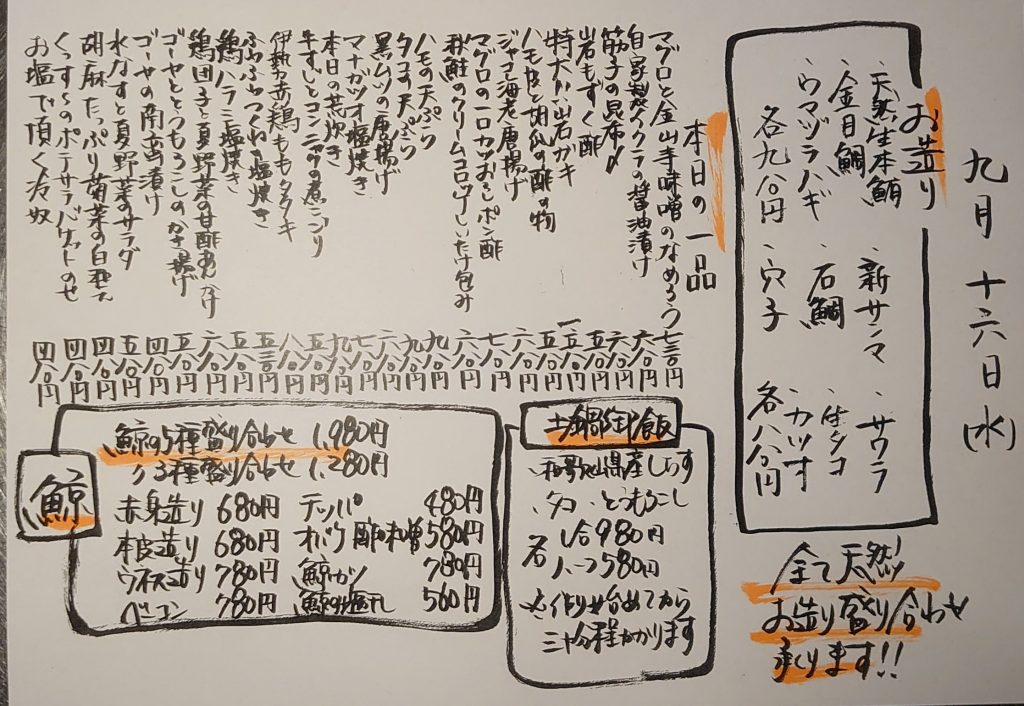 九月十六日(水)
お造り
・天然生本鮪 ・新サンマ ・サワラ
・金目鯛 ・石鯛 ・生タコ
・ウマヅラハギ ・カツオ
各九八〇円 ・穴子 各八八〇円
全て天然!
お造り盛り合わせ
承ります!!
本日の一品
マグロと金山寺味噌のなめろう 七三〇円
自家製イクラの醤油漬け 六八〇円
筋子の昆布〆 六八〇円
岩もずく酢 五八〇円
特大 岩ガキ
ハモ皮と胡瓜の酢の物 五八〇円
ジャコ海老唐揚げ 六八〇円
マグロの一口カツおろしポン酢 七八〇円
秋鮭のクリームコロッケしいたけ包み 六八〇円
ハモの天ぷら 九八〇円
タコの天ぷら 九八〇円
黒ムツの唐揚げ 六八〇円
マナガツオ塩焼き 七八〇円
本日の荒炊き 九八〇円
牛すじとコンニャクの煮こごり 五八〇円
伊勢赤鶏ももタタキ 八八〇円
ふわふわつくね塩焼き 五三〇円
鶏ハラミ塩焼き 五八〇円
鶏団子と夏野菜の甘酢あんかけ 六八〇円
ゴーヤととうもろこしのかき揚げ 五八〇円
ゴーヤの南蛮漬け 四八〇円
水なすと夏野菜サラダ 五八〇円
胡麻たっぷり菊菜の白和え 四八〇円
くっす〜のポテサラバケットのせ 四八〇円
お塩で頂く冷奴 四八〇円
土鍋御飯
・和歌山県産しらす
・タコ ・とうもろこし
各 1合980円
ハーフ580円
※作り始めてから
三十分程かかります
鯨
鯨の5種盛り合わせ 1,980円
〃3種盛り合わせ 1,280円
赤身造り 680円 テッパ 480円
本皮造り 680円 オバケ酢味噌 580円
ウネス造り 780円 鯨カツ 780円
ベーコン 780円 鯨の塩干し 560円